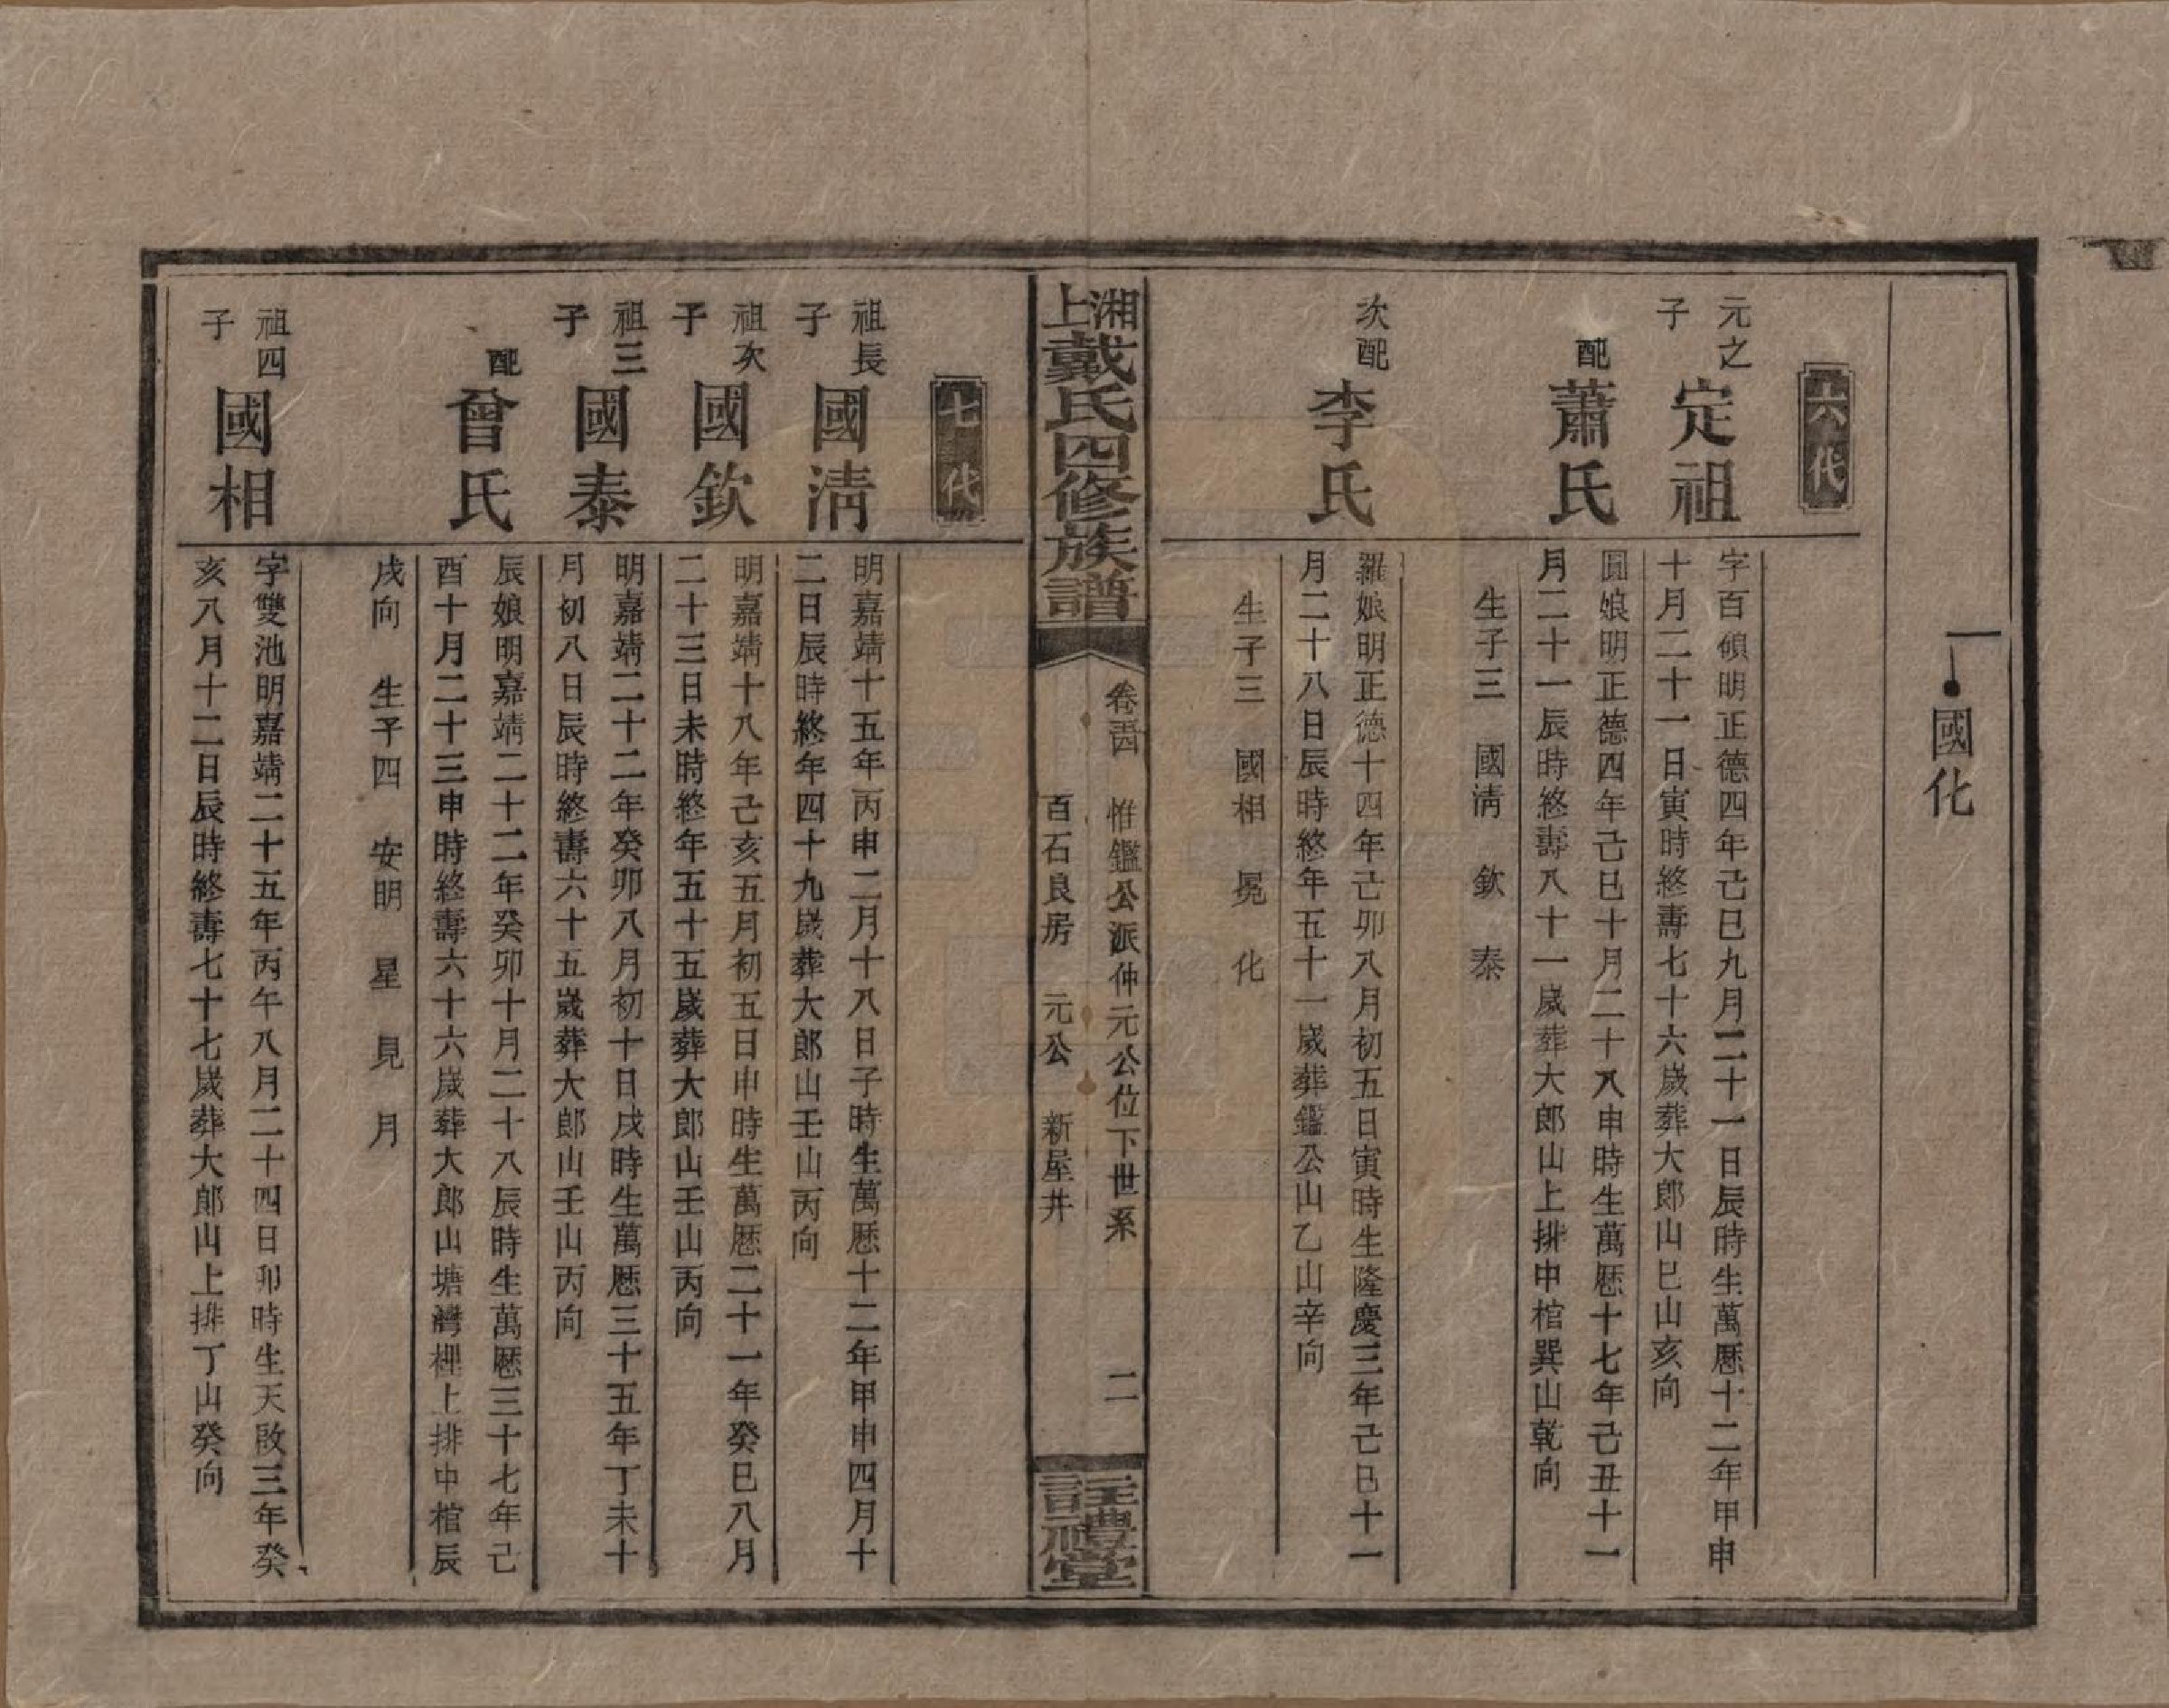 國化
六代
元之子
定祖
字百碩明正德四年己巳九月二十一日辰時生萬厯十二年甲申
十月二十一日寅時終壽七十六歲葬大郎山巳山亥向
配
蕭氏
圓娘明正德四年己巳十月二十八申時生萬厯十七年己丑十一
月二十一辰時終壽八十一歲葬大郎山上排中棺巽山乾向
生子三 國清 欽 泰
次配
李氏
羅娘明正德十四年己卯八月初五日寅時生隆慶三年己巳十一
月二十八日辰時終年五十一歲葬鑑公山乙山辛向
生子三 國相 冕 化
湘上戴氏四修族譜
惟鑑公派仲元公位下世系 二
百石良房 元公 新屋井
註禮堂
七代
祖長子
國清
明嘉靖十五年丙申二月十八日子時生萬厯十二年甲申四月十
二日辰時終年四十九歲葬大郎山壬山丙向
祖次子
國欽
明嘉靖十八年己亥五月初五日申時生萬厯二十一年癸巳八月
二十三日未時終年五十五歲葬大郎山壬山丙向
祖三子
國泰
明嘉靖二十二年癸卯八月初十日戌時生萬厯三十五年丁未十
月初八日辰時終壽六十五歲葬大郎山壬山丙向
配
曾氏
辰娘明嘉靖二十二年癸卯十月二十八辰時生萬厯三十七年己
酉十月二十三申時終壽六十六歲葬大郎山塘灣裡上排中棺辰
戌向 生子四 安明 星 見 月
祖四子
國相
字雙池明嘉靖二十五年丙午八月二十四日卯時生天啟三年癸
亥八月十二日辰時終壽七十七歲葬大郎山上排丁山癸向